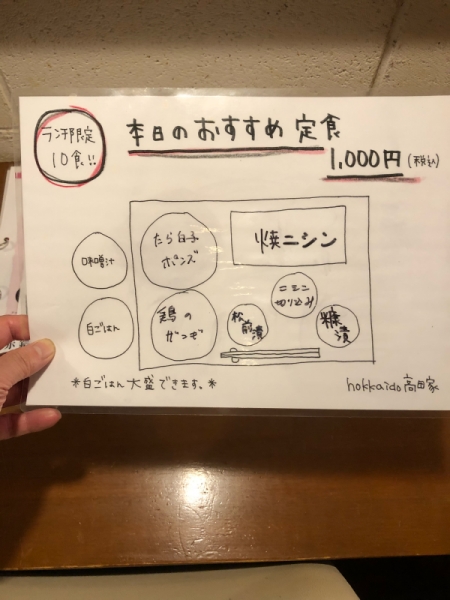 ランチ限定
10食!!
本日のおすすめ定食
1,000円(税込)
味噌汁
白ごはん
たら白子
ポンズ
焼ニシン
鶏の
ザンギ
松
前
漬
ニシン
切り込み
糠
漬
*白ごはん大盛できます。*
hokkaido 高田家